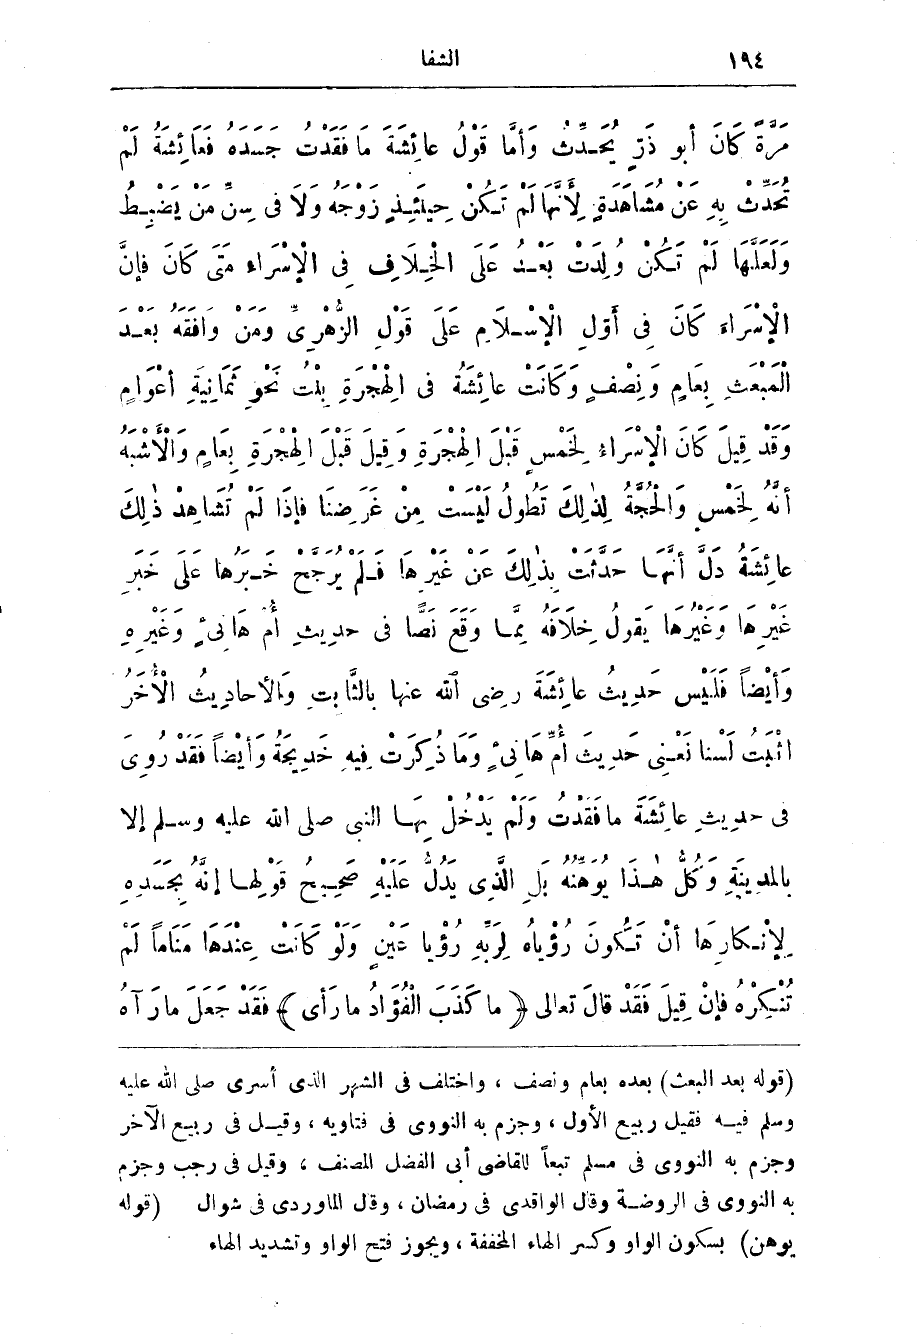 ١٩٤ الشفا
مَرَّةً كَانَ أبو ذَرٍّ يُحَدِّثُ وَأمَّا قَوْلُ عائِشَةَ مَا فَقَدْتُ جَسَدَهُ فَعَائِشَةُ لَمْ
تُحَدِّثْ بِهِ عَنْ مُشَاهَدَةٍ لِأَنَّهَا لَمْ تَكُنْ حِينَئِذٍ زَوْجَهُ وَلَا فى سِنِّ مَنْ يَضْبِطُ
وَلَعَلَّهَا لَمْ تَكُنْ وُلِدَتْ بَعْدُ عَلَى الْخِلَافِ فِى الْإِسْرَاءِ مَتَى كَانَ فإنَّ
الْإِسْرَاءَ كَانَ فِى أَوَّلِ الْإِسْلَامِ عَلَى قَوْلِ الزُّهْرِىِّ وَمَنْ وَافَقَهُ بَعْدَ
الْمَبْعَثِ بِعَامٍ وَنِصْفٍ وَكَانَتْ عائِشَةُ فى الْهِجْرَةِ بِنْتَ نَحْوِ ثَمَانِيَةِ أعْوَامٍ
وَقَدْ قِيلَ كَانَ الْإِسْرَاءُ لِخَمْسٍ قَبْلَ الْهِجْرَةِ وَقِيلَ قَبْلَ الْهِجْرَةِ بِعَامٍ وَالْأَشْبَهُ
أنَّهُ لِخَمْسٍ وَالْحُجَّةُ لِذٰلِكَ تَطُولُ لَيْسَتْ مِنْ غَرَضِنَا فإذَا لَمْ تُشَاهِدْ ذٰلِكَ
عائِشَةُ دَلَّ أنَّهَا حَدَّثَتْ بِذٰلِكَ عَنْ غَيْرِهَا فَلَمْ يُرَجَّحْ خَبَرُها عَلَى خَبَرِ
غَيْرِهَا وَغَيْرُهَا يَقولُ خِلَافَهُ مِمَّا وَقَعَ نَصًّا فى حديثِ أُمِّ هَانِىءٍ وغَيْرِهِ
وَأيْضاً فَلَيْسَ حَدِيثُ عائِشَةَ رضى الله عنها بالثَّابتِ وَالأحاديثُ الْأُخَرُ
اثْبَتُ لَسْنا نَعْنِى حَدِيثَ أُمِّ هَانِىءٍ وَمَا ذُكِرَتْ فِيهِ خَدِيجَةُ وَأيْضاً فَقَدْ رُوِىَ
فى حديثِ عائِشَةَ ما فَقَدْتُ وَلَمْ يَدْخُلْ بِهَا النبى صلى الله عليه وسلم إلا
بالمدِينَةِ وَكُلُّ هٰذَا يُوَهِّنُهُ بَلِ الَّذِى يَدُلُّ عَلَيْهِ صَحِيحُ قَوْلِها إنَّهُ بِجَسَدِهِ
لِإنْكَارِهَا أنْ تَكُونَ رُؤْياهُ لِرَبِّهِ رُؤْيا عَيْنٍ وَلَوْ كَانَتْ عِنْدَهَا مَنَاماً لَمْ
تُنْكِرْهُ فإنْ قِيلَ فَقَدْ قالَ تعالى ﴿ ما كَذَبَ الْفُؤَادُ ما رَأى ﴾ فَقَدْ جَعَلَ ما رَآهُ
(قوله بعد البعث) بعده بعام ونصف ، واختلف فى الشهر الذى أسرى صلى الله عليه
وسلم فيه فقيل ربيع الأول ، وجزم به النووى فى فتاويه ، وقيل فى ربيع الآخر
وجزم به النووى فى مسلم تبعاً للقاضى أبى الفضل المصنف ، وقيل فى رجب وجزم
به النووى فى الروضة وقال الواقدى فى رمضان ، وقال الماوردى فى شوال (قوله
يوهن) بسكون الواو وكسر الهاء المخففة ، ويجوز فتح الواو وتشديد الهاء